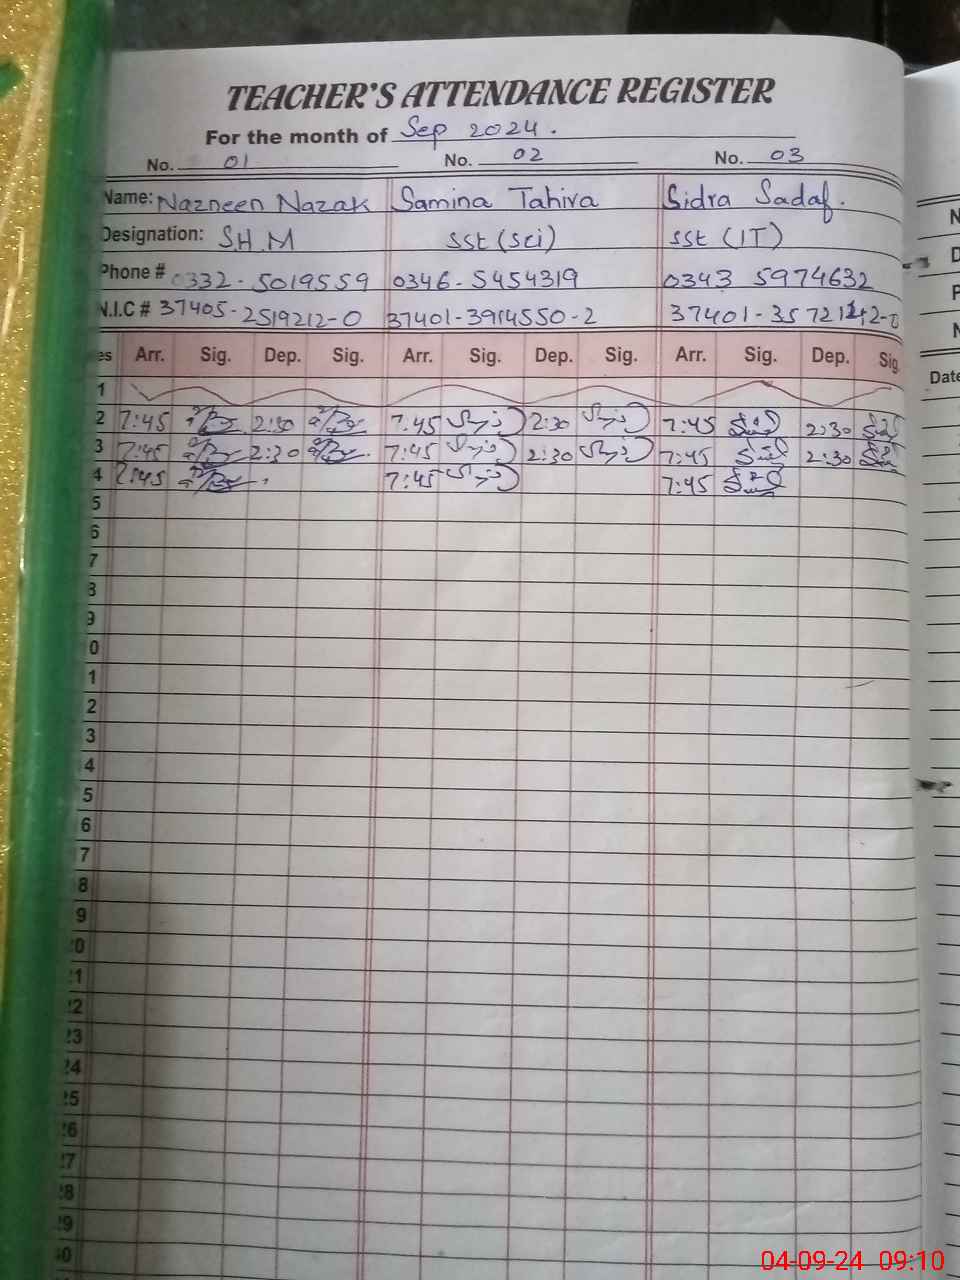 TEACHER'S ATTENDANCE REGISTER
For the month of Sep 2024.
No. 01 No. 02 No. 03
Name: Nazneen Nazak Samina Tahira Sidra Sadaf.
Designation: S.H.M SSt (Sci) SSt (IT)
Phone # 0332-5019559 0346-5454319 0343 5974632
N.I.C # 37405-2519212-0 37401-3914550-2
es Arr. Sig. Dep. Sig. Arr. Sig. Dep. Sig. Arr. Sig. Dep. Sig.
1
2 7:45 2:30 7:45 2:30 7:45 2:30
3 7:45 2:30 7:45 2:30 7:45 2:30
4 7:45 7:45 7:45
5
6
7
8
9
0
1
2
3
4
5
6
7
8
9
20
21
22
23
24
25
26
27
28
29
30
Date
04-09-24 09:10